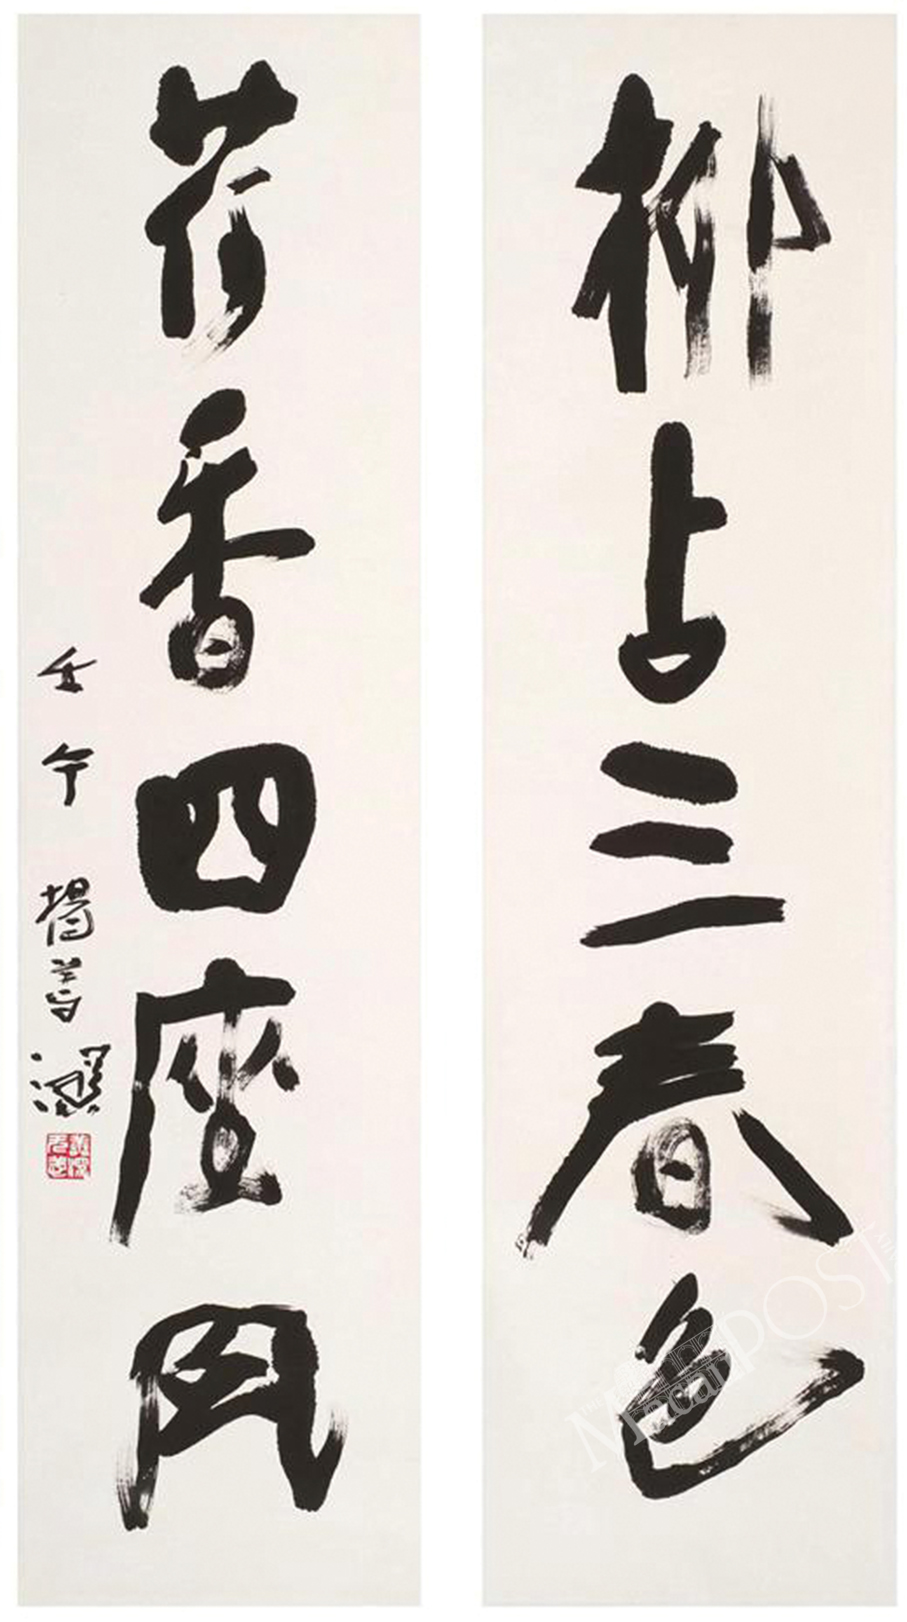 柳占三春色
荷香四座風
壬午 楊善深
MacauPOST